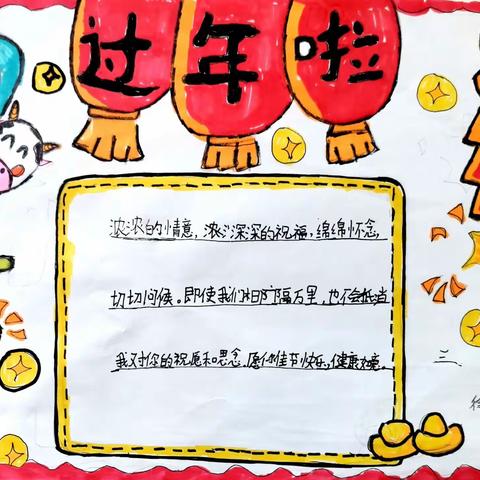 过年啦
浓浓的情意，浓浓深深的祝福，绵绵怀念，
切切问候。即使我们相隔万里，也不会抵消
我对你的祝愿和思念，愿你佳节快乐，健康
三、